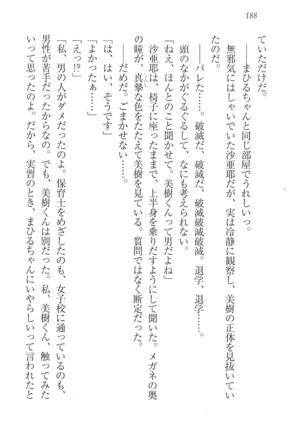 188
ていただけだ。
――まひるちゃんと同じ部屋でうれしいっ。
無邪気にはしゃいでいた沙亜耶だが、実は冷静に観察し、美樹の正体を見抜いてい
たのだ。
――バレた。破滅だ、破滅だ、破滅破滅破滅。退学、退学……。
頭のなかがぐるぐるして、なにも考えられない。
「ねえ、ほんとのこと聞かせて。美樹くんって男だよね」
沙亜耶は、椅子に座ったままで、上半身を乗りだすようにして聞いた。メガネの奥
の瞳が、真摯な色をたたえて美樹を見ている。質問ではなく断定だった。
――だめだ。ごまかせない……。
「は、はい、そうです」
「よかったぁ……」
「えっ!?」
「私、男の人がダメだったのよ。保育士をめざしたのも、女子校に通っているのも、
男性が苦手だったからなの。でも、美樹くんは別だった。私、美樹くん、触ってみた
いって思ったのよ。だから、実習のとき、まひるちゃんにいやらしいって言われたと